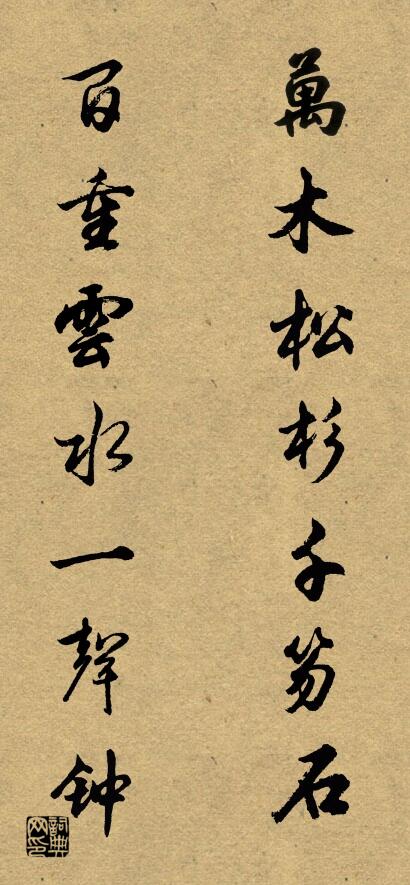 萬木松杉千笏石
百重雲水一聲钟
詞典网印